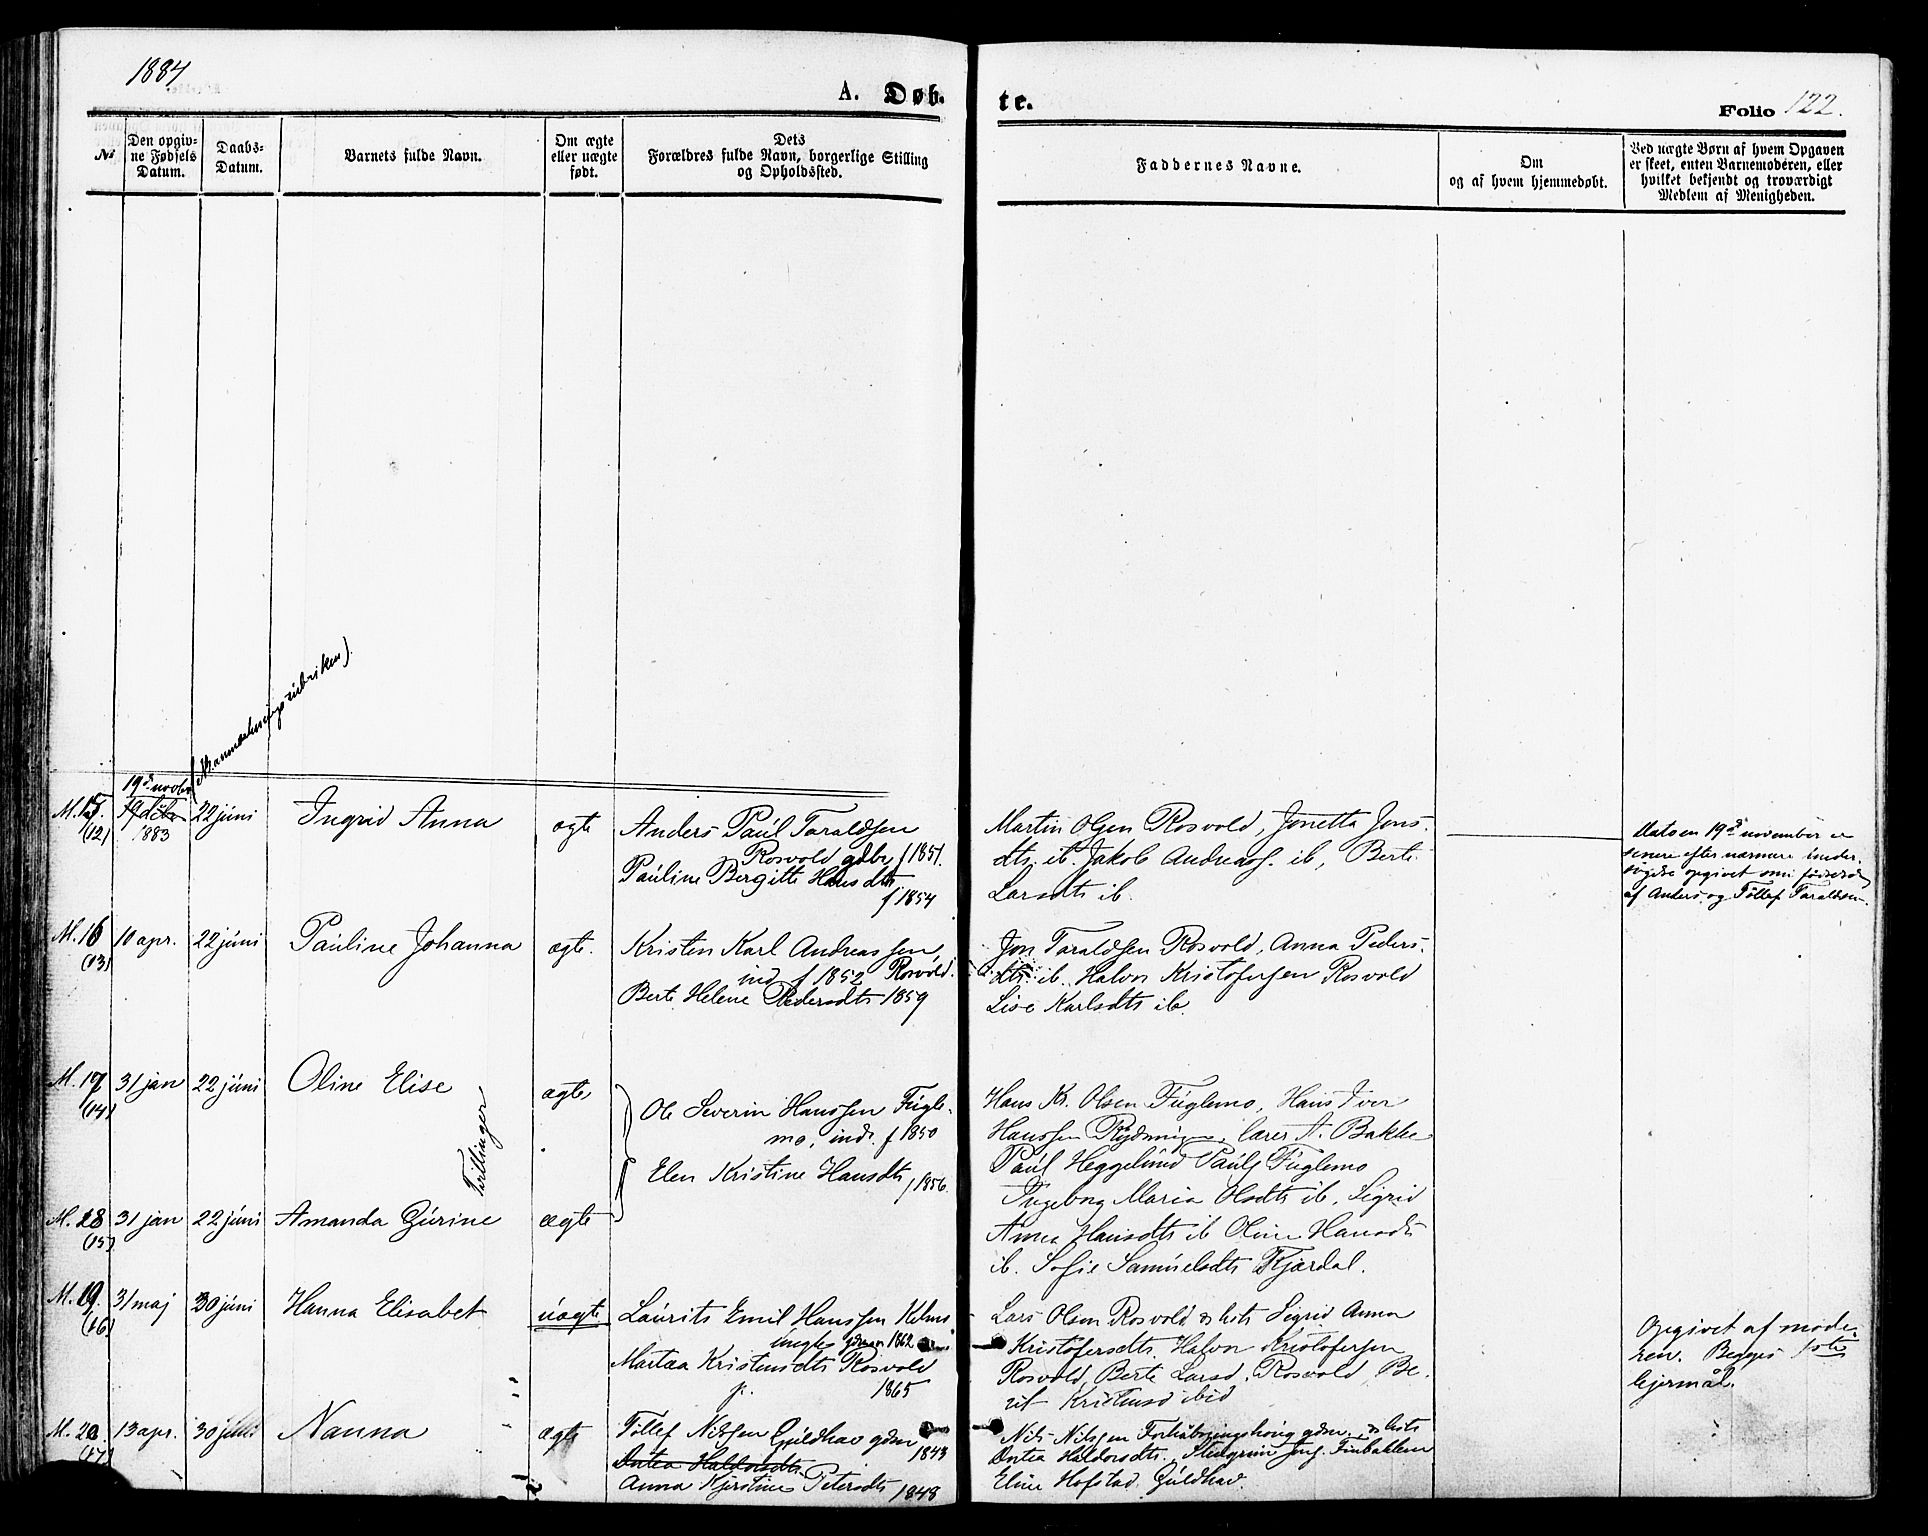 1884
A. Døb.
te.
Folio 122.
№
Den opgiv-
ne Fødsels
Datum.
Daabs-
Datum.
Barnets fulde Navn.
Om ægte
eller uægte
født.
Dets
Forældres fulde Navn, borgerlige Stilling
og Opholdssted.
Faddernes Navne.
Om
og af hvem hjemmedøbt.
Ved uægte Børn af hvem Opgaven
er skeet, enten Barnemoderen, eller
hvilket bekjendt og troværdigt
Medlem af Menigheden.
(NB. anmærkningsrubriken).
M. 15.
(12)
19de novbr
19 dcbr
1883
22 júni
Ingrid Anna
ægte
Anders Paúl Taraldsen
Rosvold gdbr. f 1851.
Paúline Bergitte Hansdtr
f 1854
Martin Olsen Rosvold, Jonetta Jons-
dtr. ib. Jakob Andreass. ib, Berti
Larsdtr ib.
Datoen 19de november er
senere efter nærmere únder-
søgelse opgivet som fødselsdag
af Anders og Tollef Taraldsen
M. 16
(13)
10 apr.
22 júni
Paúline Johanna
ægte.
Kristen Karl Andreassen,
ind. f 1852 Rosvold.
Berte Helene Pedersdtr 1859
Jon Taraldsen Rosvold, Anna Peders-
dtr. ib. Halvor Kristofersen Rosvold
Lise Karlsdtr ib.
M. 17
(14)
31 jan
22 júni
Oline Elise
ægte
Tvillinger
Ole Severin Hanssen Fúgle-
mo, indr. f 1850
Elen Kristine Hansdtr
f 1856.
Hans Kr. Olsen Fúglemo, Hans Iver
Hanssen Rydningen, lærer A. Bakke
Paúl Heggelúnd Paúls Fúglemo
Ingeborg Maria Olsdtr ib, Sigrid
Anna Hansdtr ib Oline Hansdtr
ib. Sofie Samúelsdtr Kjærdal.
M. 18
(15)
31 jan
22 júni
Amanda Júrine
ægte
M. 19.
(16)
31 maj
30 júni
Hanna Elisabet
úægte
Laúrits Emil Hanssen
úngk. 1862
Martea Kristensdtr Rosvold
p. 1865
Lars Olsen Rosvold & hús. Sigrid Anna
Kristofersdtr. Halvor Kristofersen
Rosvold, Berte Larsd. Rosvold, Be-
rit Kristensd ibid
Opgivet af mode-
ren. Begges 1ste
lejermål.
M. 20
(17)
13 apr.
30 júni
Nanna
ægte
Tollef Nilssen Gúldhav gdm
1843
Dntea Haldorsdtr
Anna Kjerstine Petersdtr 1848
Nils Nilssen gdm. & hús.
Dntea Haldorsdtr. Stengrim Jens. Finbakken
Eline Hofstad Gúldhav.